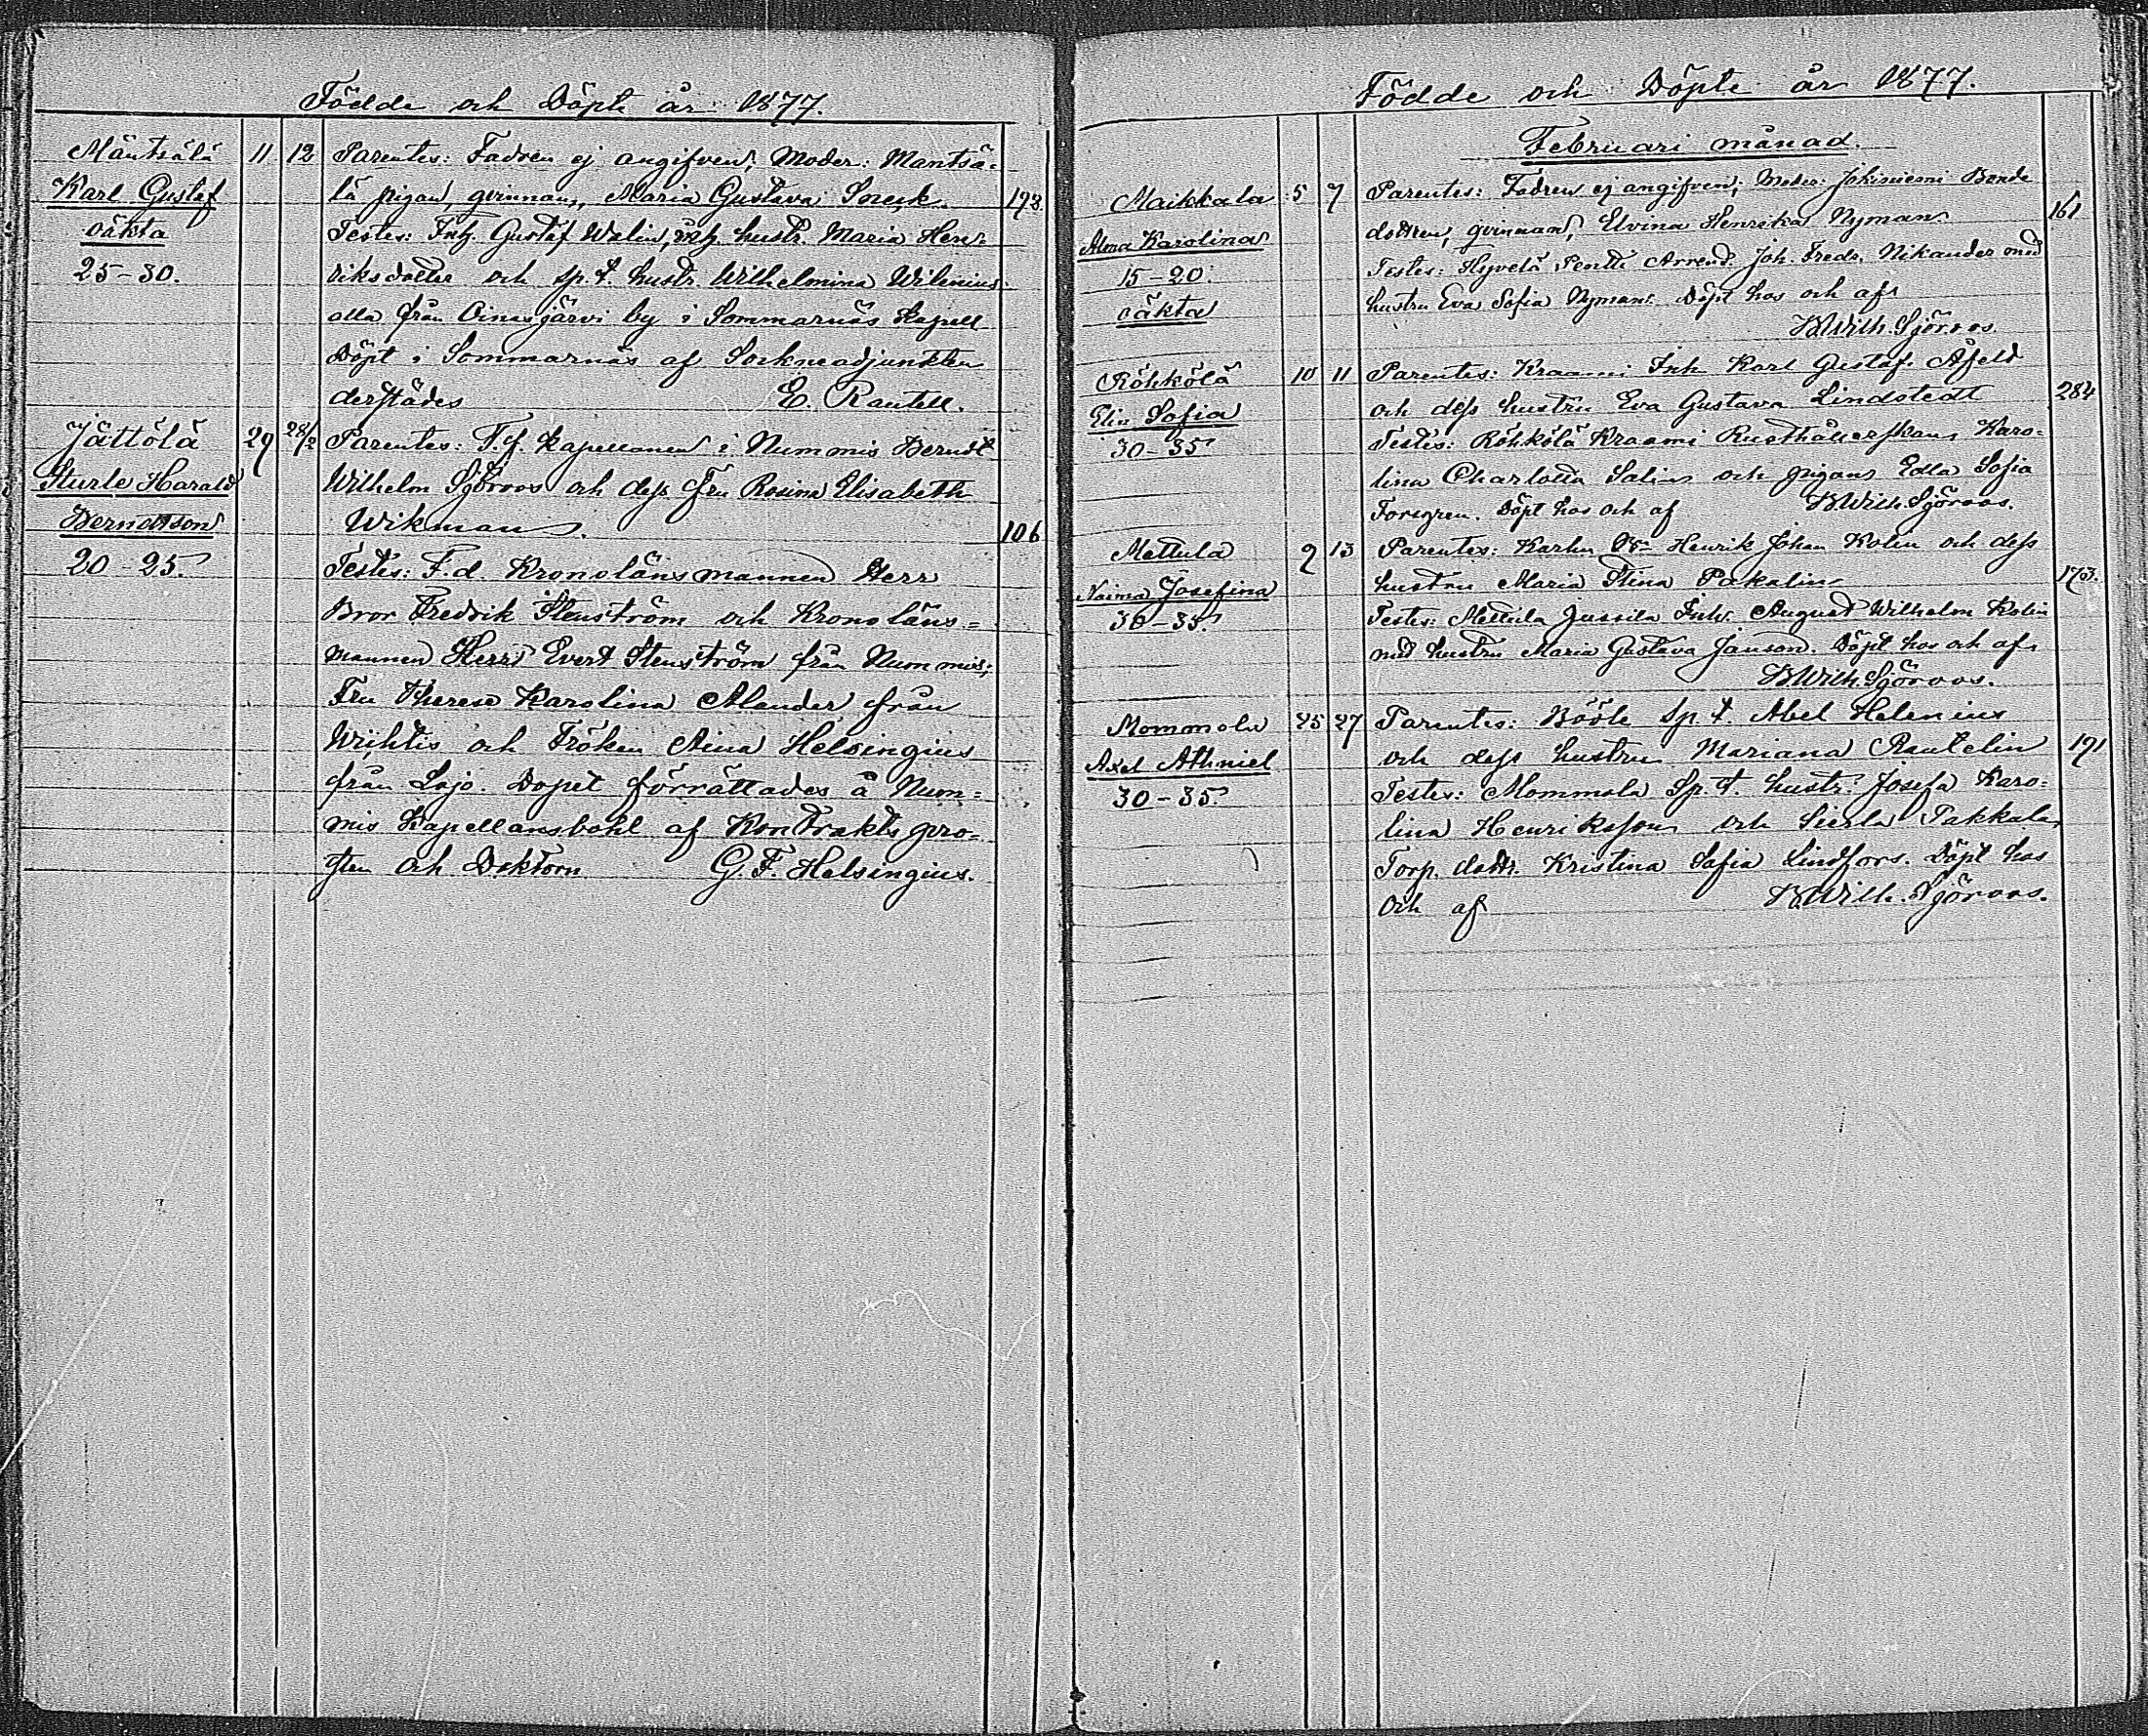 Födde och Döpte år 1877.
Mäntsälä 11 12 Parentes: Fadren ej angifven; Moder: Mantsä-
Karl Gustaf lä pigan, qvinnan, Maria Gustava Sneck. 193.
oäkta Testes: Inh. Gustaf Walin, hustr. Maria Hen-
25-30. riksdotter och sp. t. hustr. Wilhelmina Wilenius
alla från Oinasjärvi by i Sommarnäs Kapell
Döpt i Sommarnäs af Sockneadjunkten
derstädes E. Rautell.
Jättölä 29 28/2 Parentes: T.f. Kapellanen i Nummis Berndt
Sturle Harald Wilhelm Sjöroos och dess Fru Rosina Elisabeth
Berndtson Wikman. 106
20-25. Testes: F.d. Kronolänsmannen Herr
Bror Fredrik Stenström och Kronoläns=
mannen Herr Evert Stenström från Nummis;
Fru Therese Karolina Alander från
Wichtis och Fröken Aina Helsingius
från Lojo. Dopet förrättades å Num=
mis Kapellansbohl af Kontraktspro=
sten och Doktorn G. F. Helsingius.
Födde och Döpte år 1877.
Februari månad.
Maikkala 5 7 Parentes: Fadren ej angifven; Moder: Johiniemi Bonde
Alma Karolina dottren, qvinnan, Elvina Henrika Nyman 161
15-20. Testes: Hyvelä Pentti Arrend. Joh. Fredr. Nikander med
oäkta hustru Eva Sofia Nyman. Döpt hos och af
B Wilh. Sjöroos
Röhkölä 10 11 Parentes: Kraami Inh. Karl Gustaf Åfeld
Elin Sofia och dess hustru Eva Gustava Lindstedt 284
30-35 Testes: Röhkölä Kraami Rusthållerskan Karo-
lina Charlotta Salin och pigan Edla Sofia
Forsgren. Döpt hos och af B Wilh. Sjöroos.
Mettula 2 13 Parentes: Karhu Henrik Johan Kolin och dess
Naima Josefina hustru Maria Stina Pakalin 173.
30-35. Testes: Mettula Jussila Inh. August Wilhelm Kolin
med hustru Maria Gustava Janson. Döpt hos och af
B Wilh. Sjöroos.
Mommola 25 27 Parentes: Bööle Sp. t. Abel Helenius
Axel Athniel och dess hustru Mariana Rautelin 191
30-35. Testes: Mommola Sp. t. hustr. Josefa Karo-
lina Henriksson och Sierla Pakkala
Torp. dottr. Kristina Sofia Lindfors. Döpt hos
och af B Wilh. Sjöroos.